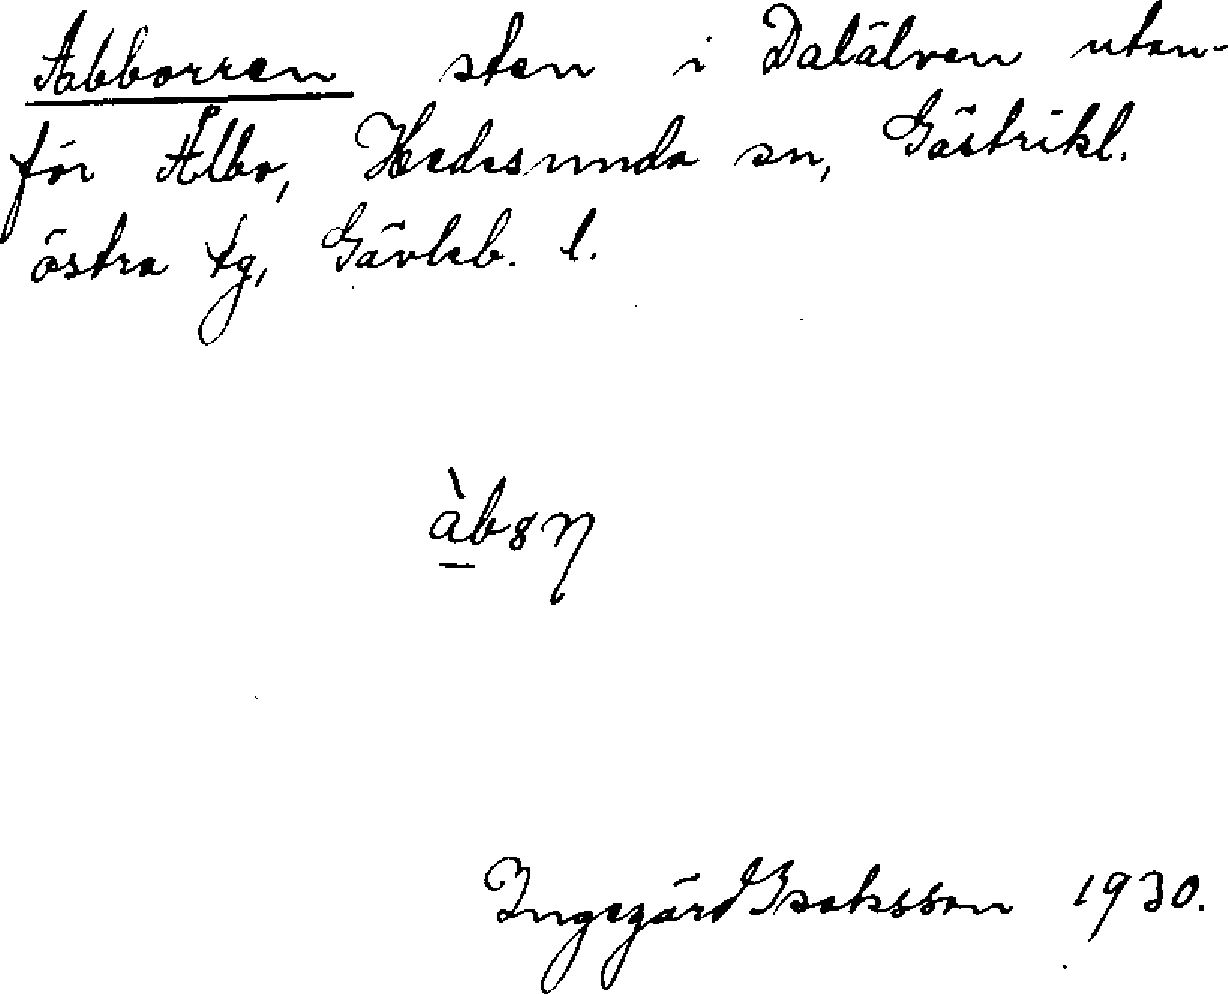 Abborren sten i Dalälven utan-
för Ålbo, Hedesunda sn, Gästrikl.
östra tg, Gävleb. l.
Ingegärd Isaksson 1930.